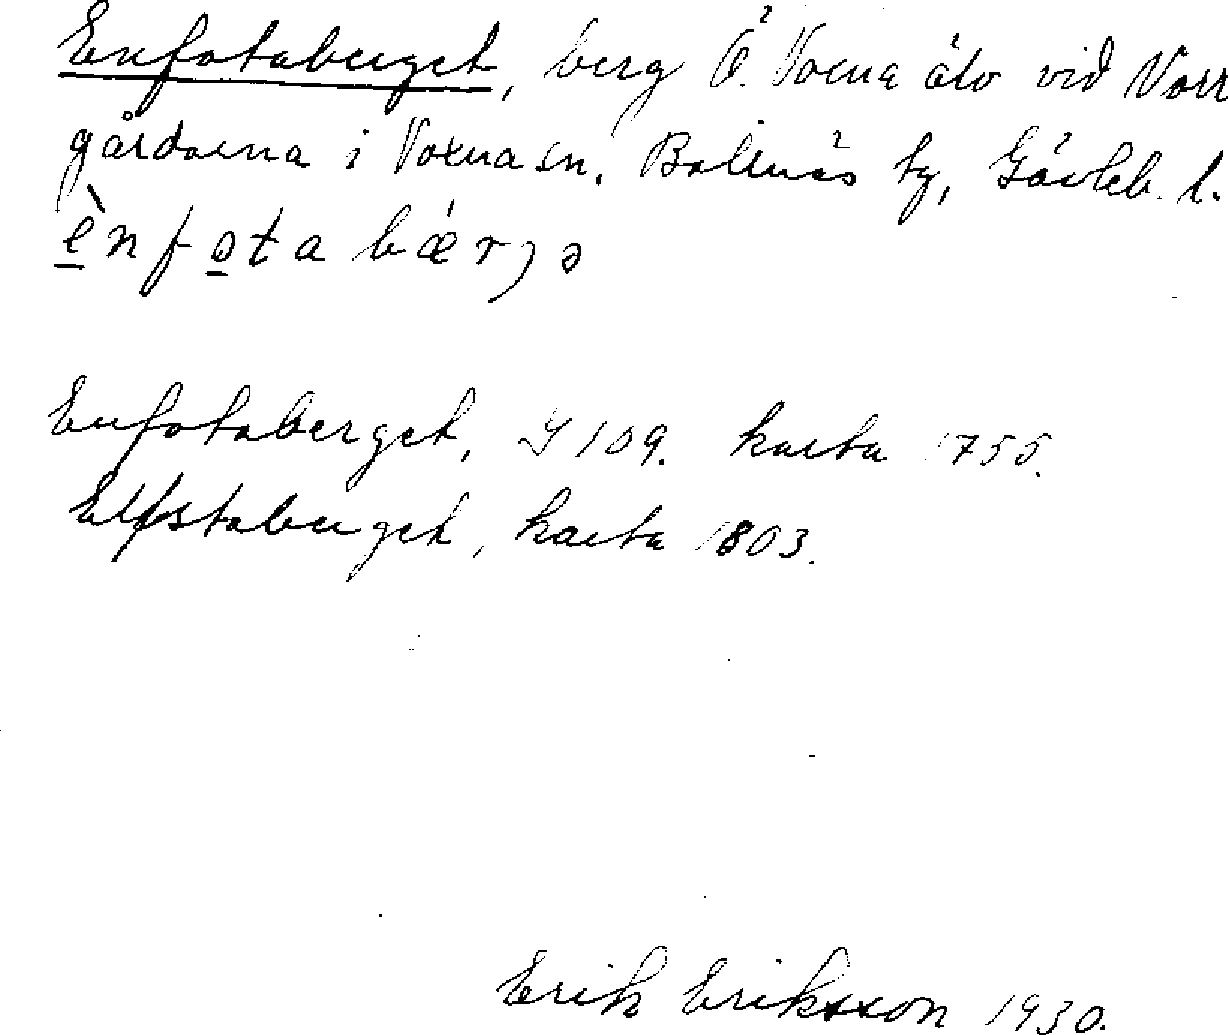 Enfotaberget, berg Ö. Voxna älv vid Vorr
gårdarna i Voxna sn. Bollnäs tg, Gävleb. l.
ènfota bǽrjə
Enfotaberget, Y 109. karta 1755.
Elfstaberget, karta 1803.
Erik Eriksson 1930.